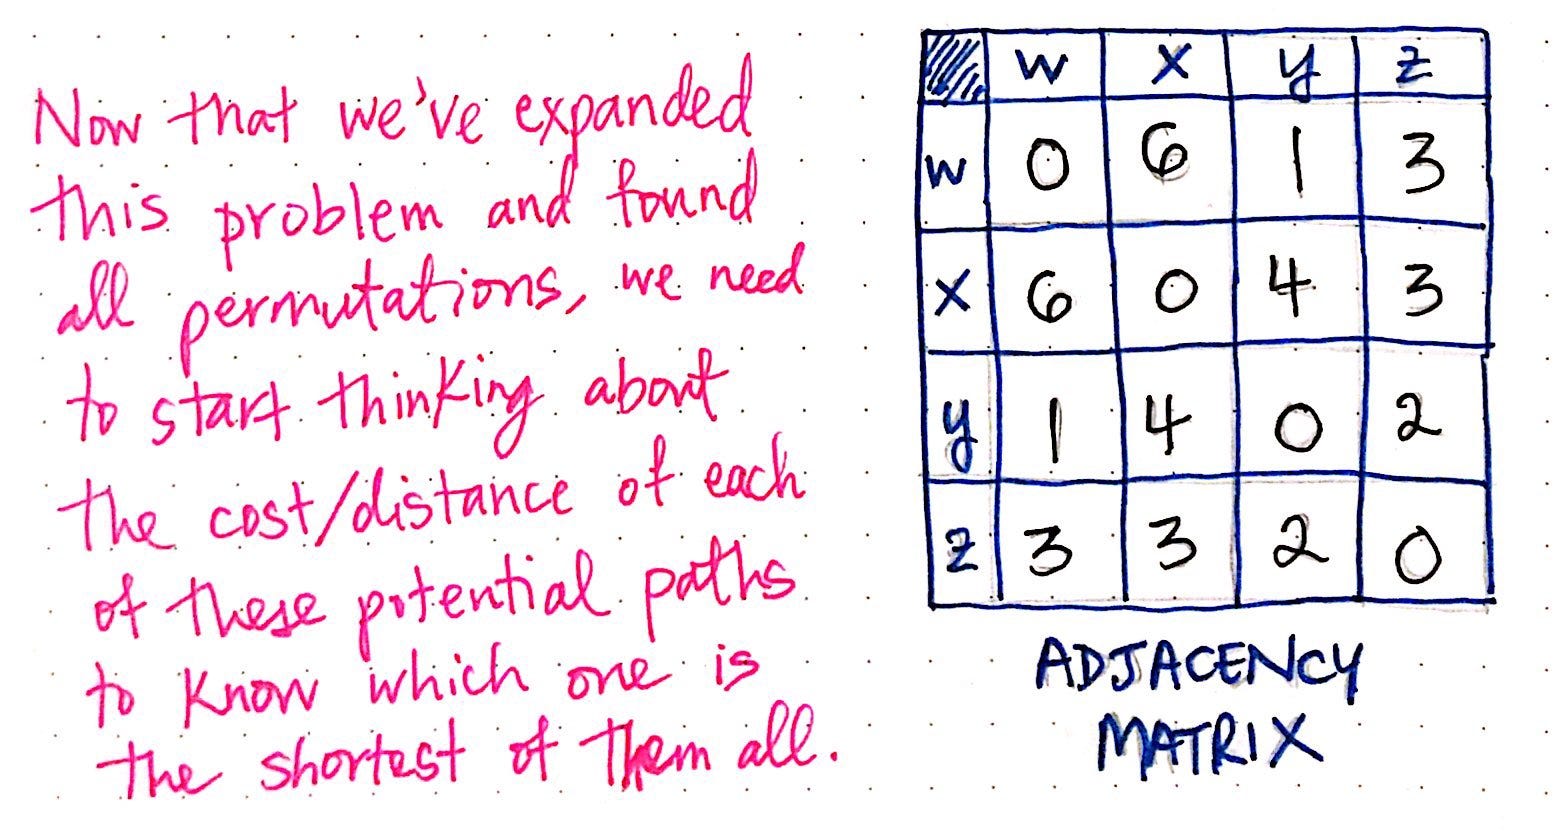 Now that we've expanded
this problem and found
all permutations, we need
to start thinking about
the cost/distance of each
of these potential paths
to know which one is
the shortest of them all.
w x y z
w 0 6 1 3
x 6 0 4 3
y 1 4 0 2
z 3 3 2 0
ADJACENCY
MATRIX